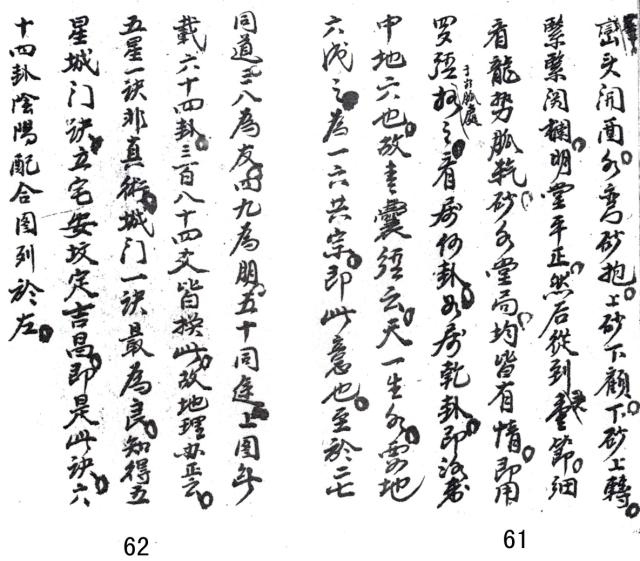 巒头開面水弯砂抱上砂下顧下砂上轉
緊緊関欄明堂平正然后從到童節細
看龍势脈乾砂水堂局均皆有情即用
罗經于於脈處格之看属何卦如属乾卦即設
中地六也故青囊經云天一生水而地
六成之為一六共宗即此意也至於二七
同道三八為友四九為朋五十同途上图
載六十四卦三百八十四爻皆換此故地理辨正云
五星一訣非真術城门一訣最為良知得五
星城门訣立宅安坟定吉昌即是此訣六
十四卦陰陽配合图列於左
61
62